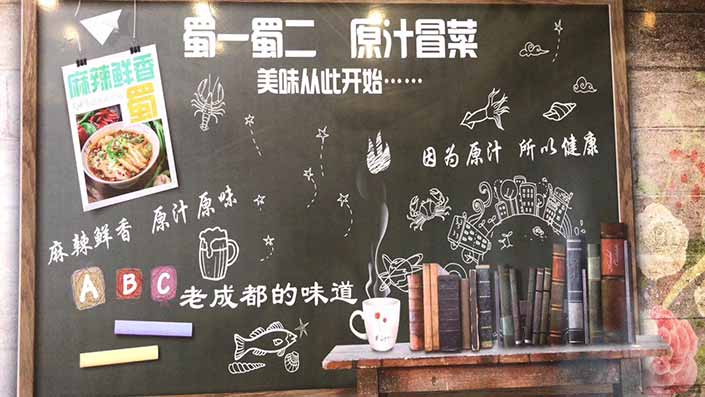 蜀一蜀二 原汁冒菜
美味从此开始……
麻辣鲜香
蜀
因为原汁 所以健康
麻辣鲜香 原汁原味
A B C
老成都的味道